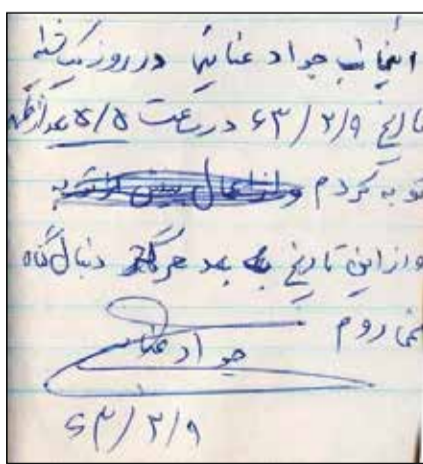 اینجانب جواد عنایتی در روز یکشنبه
تاریخ ۶۳/۲/۹ در ساعت ۵/۵ بعدازظهر
توبه کردم
و از این تاریخ به بعد هرگز دنبال گناه
نمی‌روم
جواد عنایتی
۶۳/۲/۹